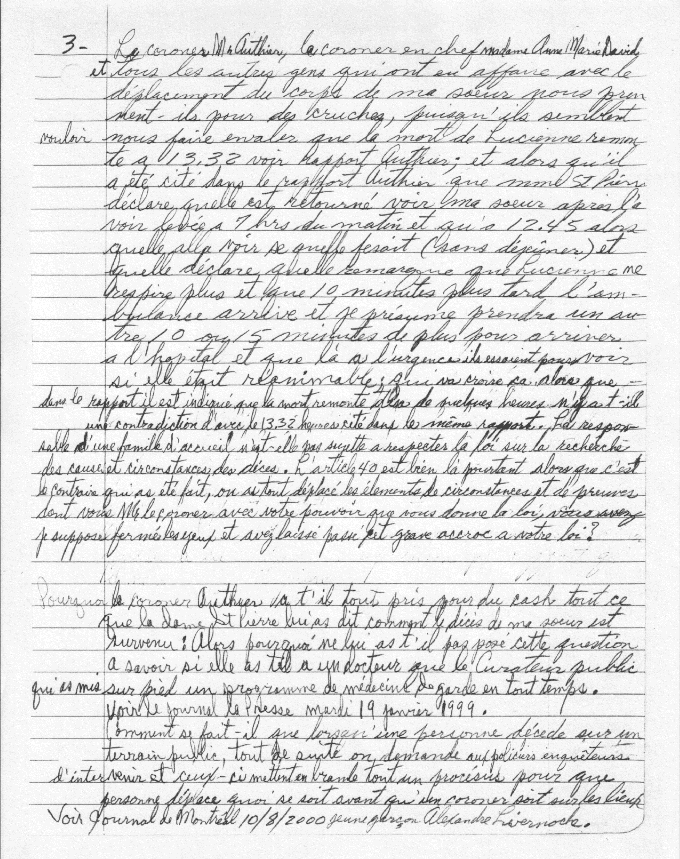 3- Le coroner Mr Authier, la coroner en chef madame Anne Marie David
et tous les autres gens qui ont eu affaire avec le
déplacement du corps de ma soeur nous pren
nent-ils pour des cruches, puisqu'ils semblent
vouloir nous faire envaler que la mort de Lucienne remon
te a 13,32 voir rapport Authier; et alors qu'il
a été cité dans le rapport Authier que mme St Pierre
déclare quelle est retourné voir ma soeur après l'a
voir levée a 7 hrs du matin et qu'a 12.45 alors
quelle alla voir se quelle fesait (sans déjeûner) et
quelle déclare quelle remarque que Lucienne ne
respire plus et que 10 minutes plus tard l'am-
bulance arrive et je présume prendra un au
tre 10 ou 15 minutes de plus pour arriver
a l'hopital et que là a l'urgence ils essaient pour voir
si elle était réanimable; qui va croire ça. alors que -
dans le rapport il est indiqué que la mort remonte a de quelques heures n'y a t-il
une contradiction d'avec le 13,32 heures cité dans le même rapport. La respon-
sable d'une famille d'accueil n'est-elle pas sujette a respecter la loi sur la recherche
des causes et circonstances des décès. L'article 40 est bien là pourtant alors que c'est
le contraire qui as été fait, on as tout déplacé les éléments de circonstances et de preuves
dont vous Mr le coroner avec votre pouvoir que vous donne la loi, vous avez
je suppose fermé les yeux et avez laissé passé cet grave accroc a votre loi?
Pourquoi le coroner Authier a t'il tout pris pour du cash tout ce
que la dame St Pierre lui as dit comment le décès de ma soeur est
survenu: Alors pourquoi ne lui as t'il pas posé cette question
a savoir si elle as télé a un docteur que le Curateur public
qui as mis sur pied un programme de médecine de garde en tout temps.
Voir le journal la Presse mardi 19 janvier 1999.
Comment se fait-il que lorsqu'une personne décède sur un
terrain public, tout de suite on demande aux policiers enquêteurs
d'intervenir et ceux-ci mettent en branle tout un procésus pour que
personne déplace quoi se soit avant qu'un coroner soit sur les lieux
Voir Journal de Montréal 10/8/2000 jeune garçon Alexandre Livernoche.